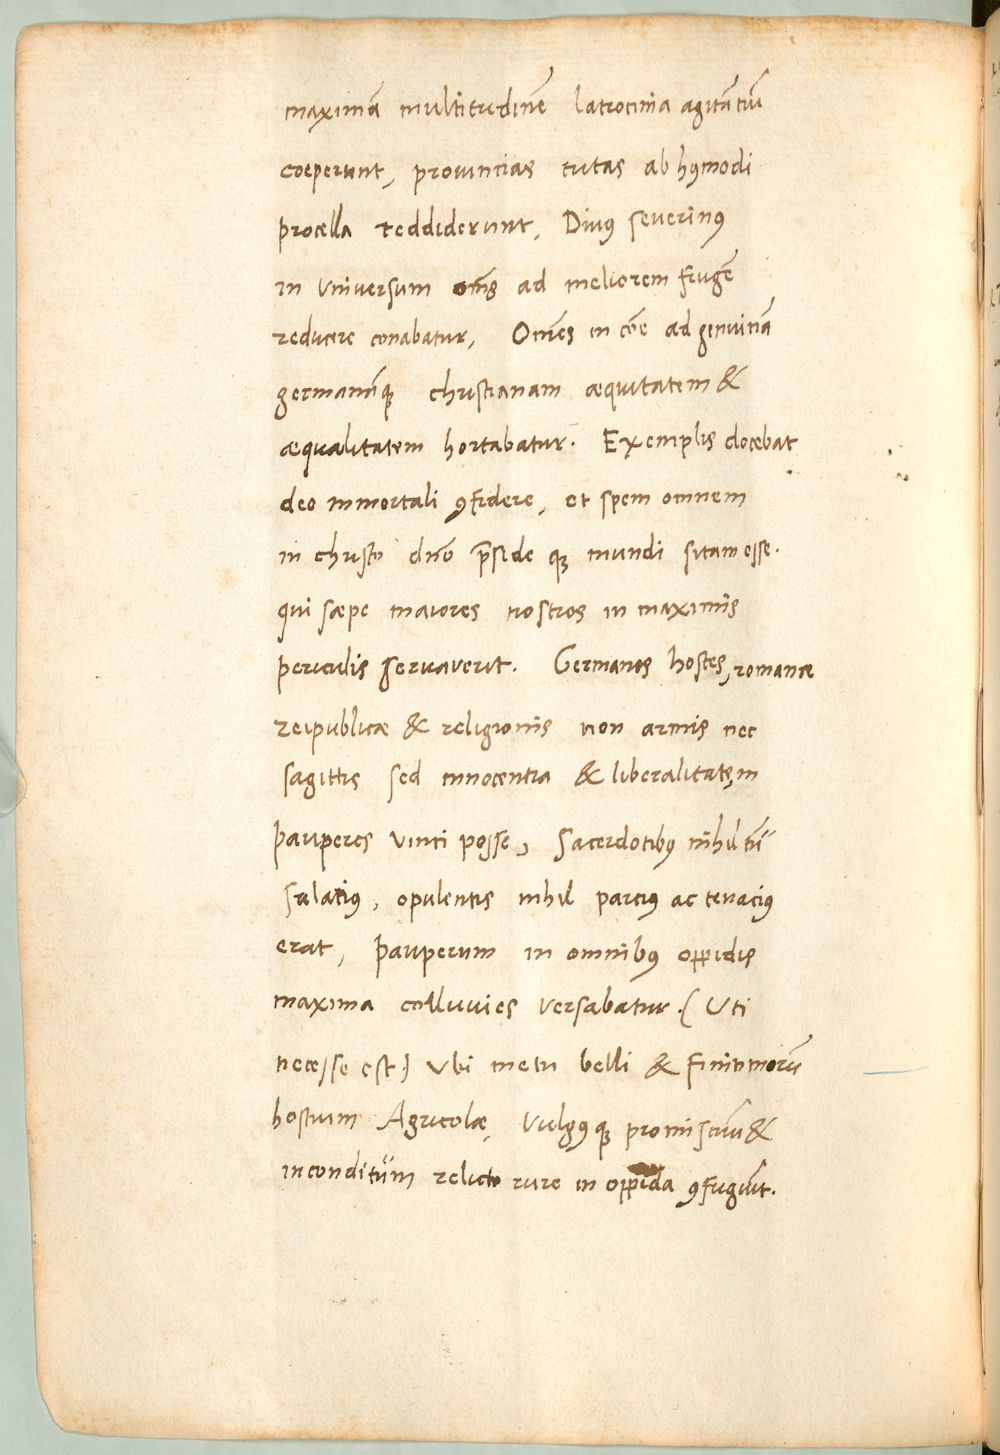 maximā multitudinē latrocinia agitātiū
coeperunt, prouincias tutas ab hꝰmodi
procella reddiderunt, Diuꝰ seuerinꝰ
in Vniuersum om̄s ad meliorem frugē
reducere conabatur, Om̄es in cōe ad genuinā
germanāqꝫ christianam æquitatem &
æqualitatem hortabatur. Exemplis docebat
deo immortali ꝯfidere, et spem omnem
in christo dn̄o p̄side qꝫ mundi sitam esse.
qui sæpe maiores nostros in maximis
periculis seruauerit. Germanos hostes, romanæ
reipublicæ & religionis non armis nec
sagittis sed innocentia & liberalitatęm
pauperes vinci posse, Sacerdotibꝰ nihil tū
salatiꝰ, opulentis nihil parciꝰ ac tenaciꝰ
erat, pauperum in omnibꝰ oppidis
maxima colluuies versabatur. (Uti
necesse est) Vbi metu belli & finitimorū
hostium Agricolæ, Vulgꝰ qꝫ promiscuū &
inconditūm relicto rure in oppida ꝯfugiūt.